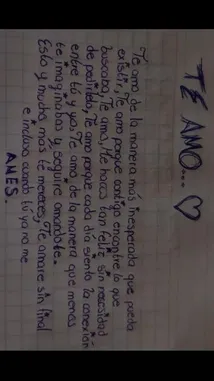 TE AMO... ♡
Te amo de la manera más inesperada que pueda
existir, Te amo porque contigo encontre lo que
buscaba, Te amo, Me haces tan feliz sin necesidad
de pedirlo, Te amo porque cada día siento la conexión
entre tú y yo. Te amo de la manera que menos
te imaginabas y seguire amandote.
Esto y mucho más te mereces, Te amare sin final
e incluso cuando tú ya no me
AMES.